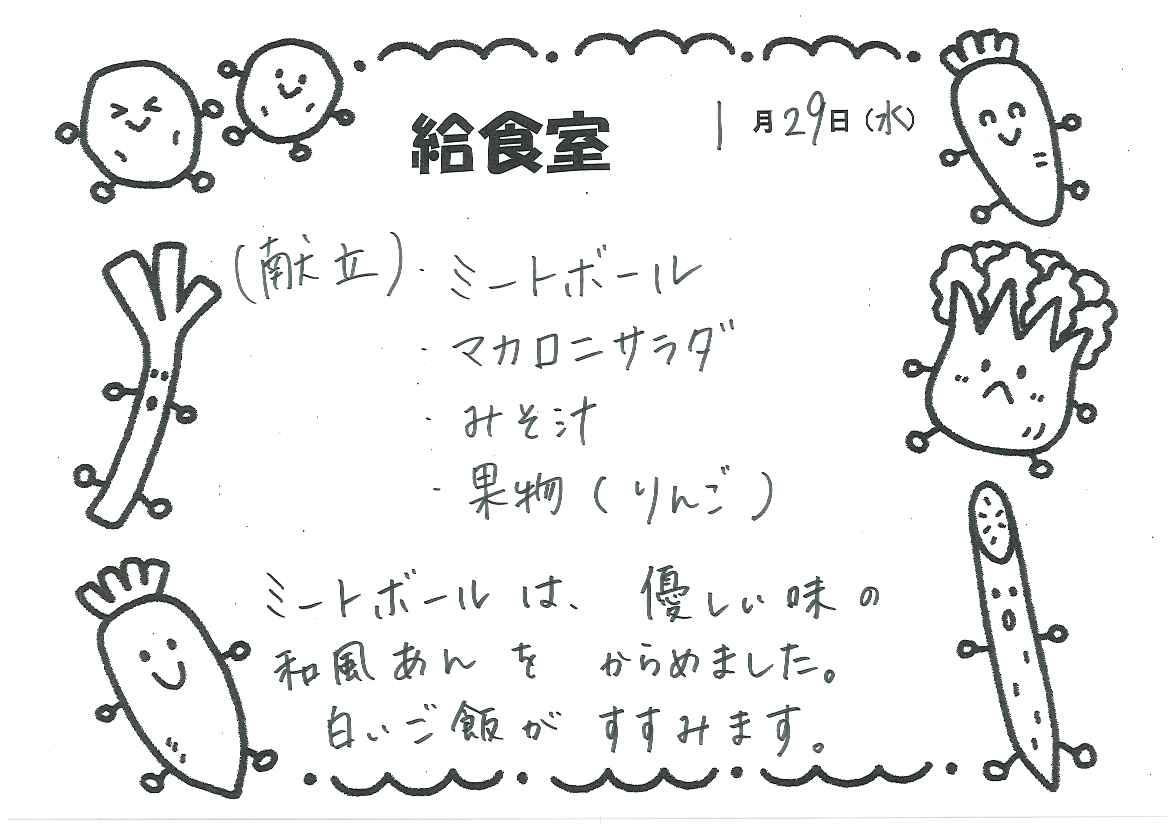 給食室 1月29日(水)
(献立)・ミートボール
・マカロニサラダ
・みそ汁
・果物(りんご)
ミートボールは、優しい味の
和風あんをからめました。
白いご飯がすすみます。